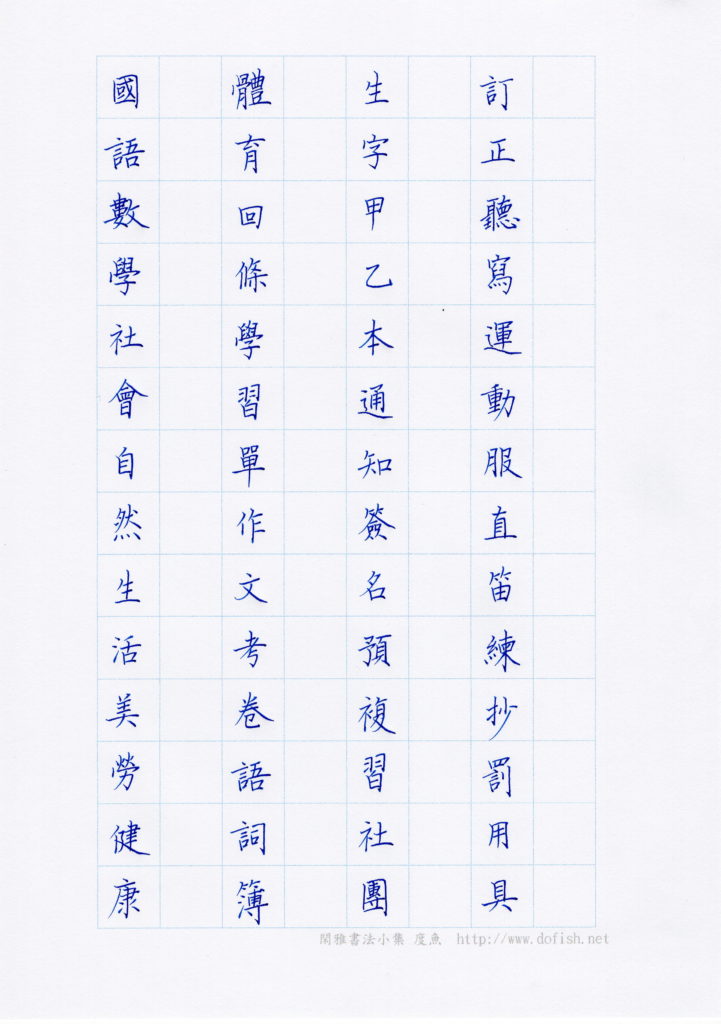 國語數學社會自然生活美勞健康
體育回條學習單作文考卷語詞簿
生字甲乙本通知簽名預複習社團
訂正聽寫運動服直笛練抄罰用具
閑雅書法小集 度魚 http://www.dofish.net